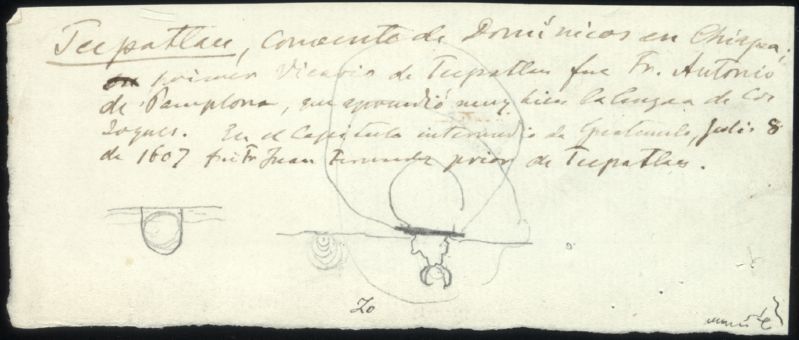 Tecpatlan, convento de Domínicos en Chiapa;
primer Vicario de Tecpatlan fue Fr. Antonio
de Pamplona, que aprendió muy bien la lengua de los
Zoques. En el Capítulo intermedio de Guatemala, Julio 8
de 1607 fué Fr Juan Fernandez prior de Tecpatlan.
Zo